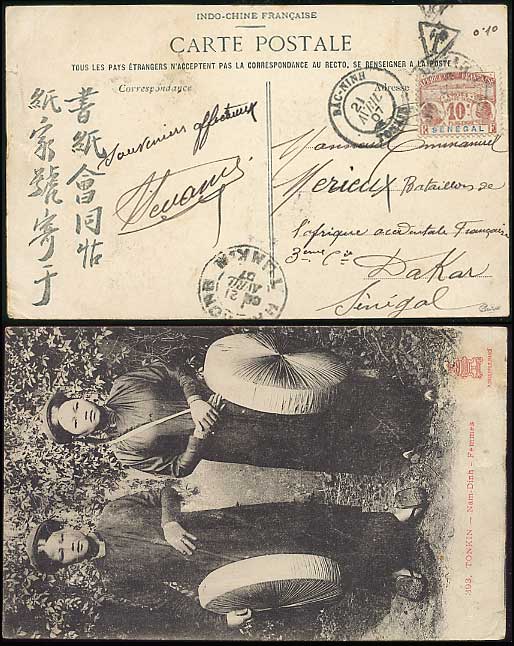 INDO-CHINE FRANÇAISE
CARTE POSTALE
TOUS LES PAYS ÉTRANGERS N'ACCEPTENT PAS LA CORRESPONDANCE AU RECTO, SE RENSEIGNER A LA POSTE
Correspondance
Adresse
0'10
T
書紙會同帖
紙家號寄于
Souvenirs affectueux
BAC-NINH
TONKIN
21
AVRIL
07
10
SÉNÉGAL
Monsieur Emmanuel
Merieux Bataillon de
l'afrique accidentale Français
3ème Cie
Dakar
Sénégal
393. TONKIN — Nam-Dinh — Femmes